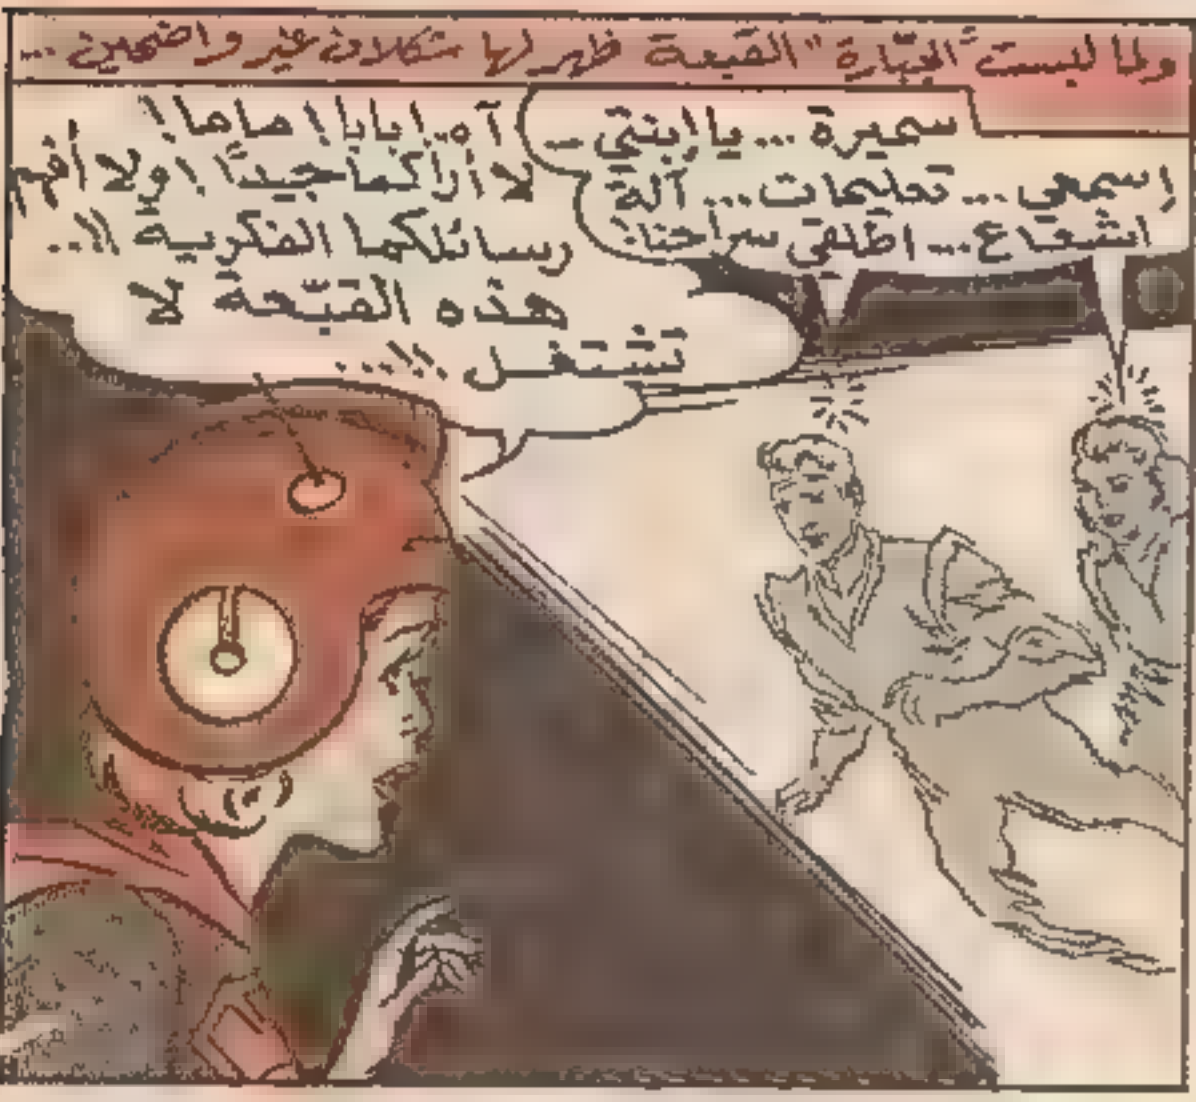 ولما لبست "الجبّارة" القبعة ظهر لها شكلان غير واضحين ...
سميرة ... يا ابنتي ...
اسمعي ... تعليمات ... آلة
اشعاع ... اطلقي سراحنا!
آه .. بابا! ماما!
لا أراكما جيدًا! ولا أفهم
رسائلكما الفكرية !!..
هذه القبّعة لا
تشتغل !!...